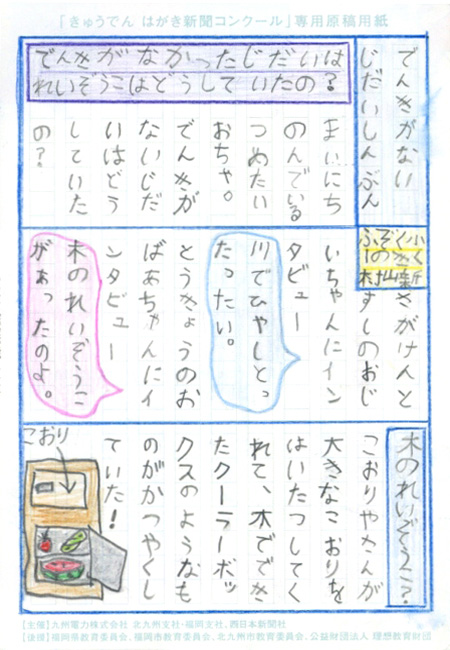 「きゅうでん はがき新聞コンクール」専用原稿用紙
でんきがない
じだいしんぶん
でんきがなかったじだいは
れいぞうこはどうしていたの?
まいにち
のんでいる
つめたい
おちゃ。
でんきが
ないじだ
いはどう
していた
の?
さがけんと
すしのおじ
いちゃんにイン
タビュー
川でひやしとっ
たったい。
とうきょうのお
ばあちゃんにイ
ンタビュー
木のれいぞうこ
があったのよ。
木のれいぞうこ?
こおりやさんが
大きなこおりを
はいたつしてく
れて、木ででき
たクーラーボッ
クスのようなも
のがかつやくし
ていた!
こおり
【主催】九州電力株式会社 北九州支社・福岡支社、西日本新聞社
【後援】福岡県教育委員会、福岡市教育委員会、北九州市教育委員会、公益財団法人 理想教育財団